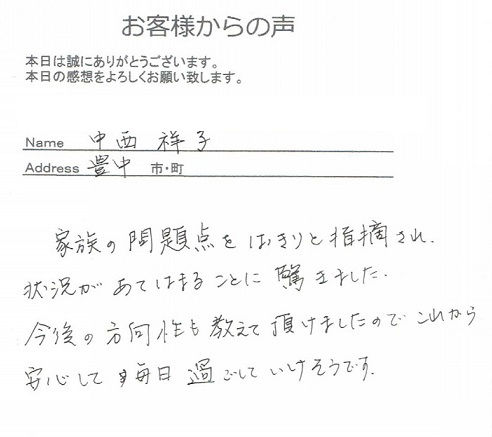 お客様からの声
本日は誠にありがとうございます。
本日の感想をよろしくお願い致します。
Name 中西 祥子
Address 豊中 市・町
家族の問題点をはきりと指摘され、
状況があてはまることに驚きました。
今後の方向性も教えて頂けましたのでこれから
安心して毎日過ごしていけそうです。